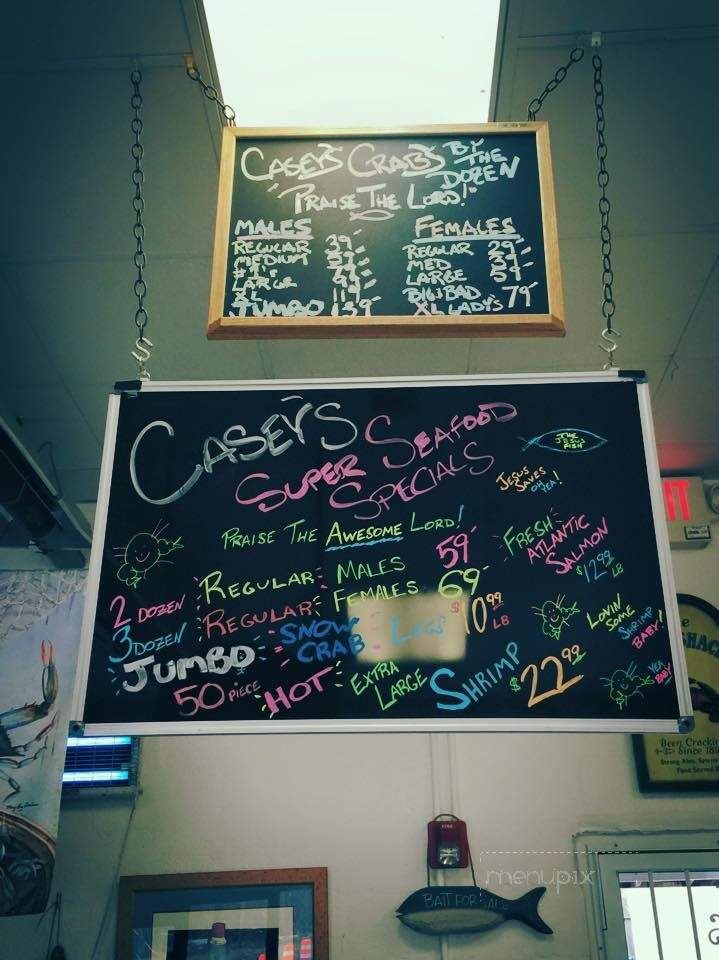 CASEY'S CRABS BY THE DOZEN
"PRAISE THE LORD!"
MALES
REGULAR 39
MEDIUM
#1's
LARGE
XL
JUMBO 139
FEMALES
REGULAR 29
MED
LARGE
BIG BAD
XL LADY'S 79
CASEY'S
SUPER SEAFOOD
SPECIALS
THE JESUS FISH
JESUS SAVES OH YEA!
PRAISE THE AWESOME LORD!
2 DOZEN REGULAR MALES 59
3 DOZEN REGULAR FEMALES 69
JUMBO SNOW CRAB LEGS $10.99 LB
50 PIECE HOT EXTRA LARGE SHRIMP $22.99
FRESH ATLANTIC SALMON
$12.99 LB
LOVIN SOME SHRIMP BABY!
YEA BABY
FIRE
BAIT FOR SALE
menupix
Since